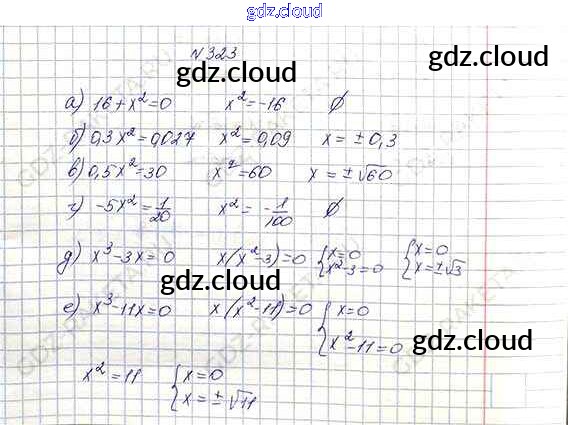 gdz.cloud
№ 323
gdz.cloud
gdz.cloud
а) 16 + x² = 0   x² = -16   ∅
б) 0,3x² = 0,027   x² = 0,09   x = ± 0,3
в) 0,5x² = 30   x² = 60   x = ±√60
г) -5x² = 1/20   x² = -1/100   ∅
д) x³ - 3x = 0   x(x² - 3) = 0   { x = 0   { x = 0
x² - 3 = 0   x = ±√3
gdz.cloud
е) x³ - 11x = 0   x(x² - 11) = 0   { x = 0
x² - 11 = 0
gdz.cloud
x² = 11   { x = 0
x = ±√11